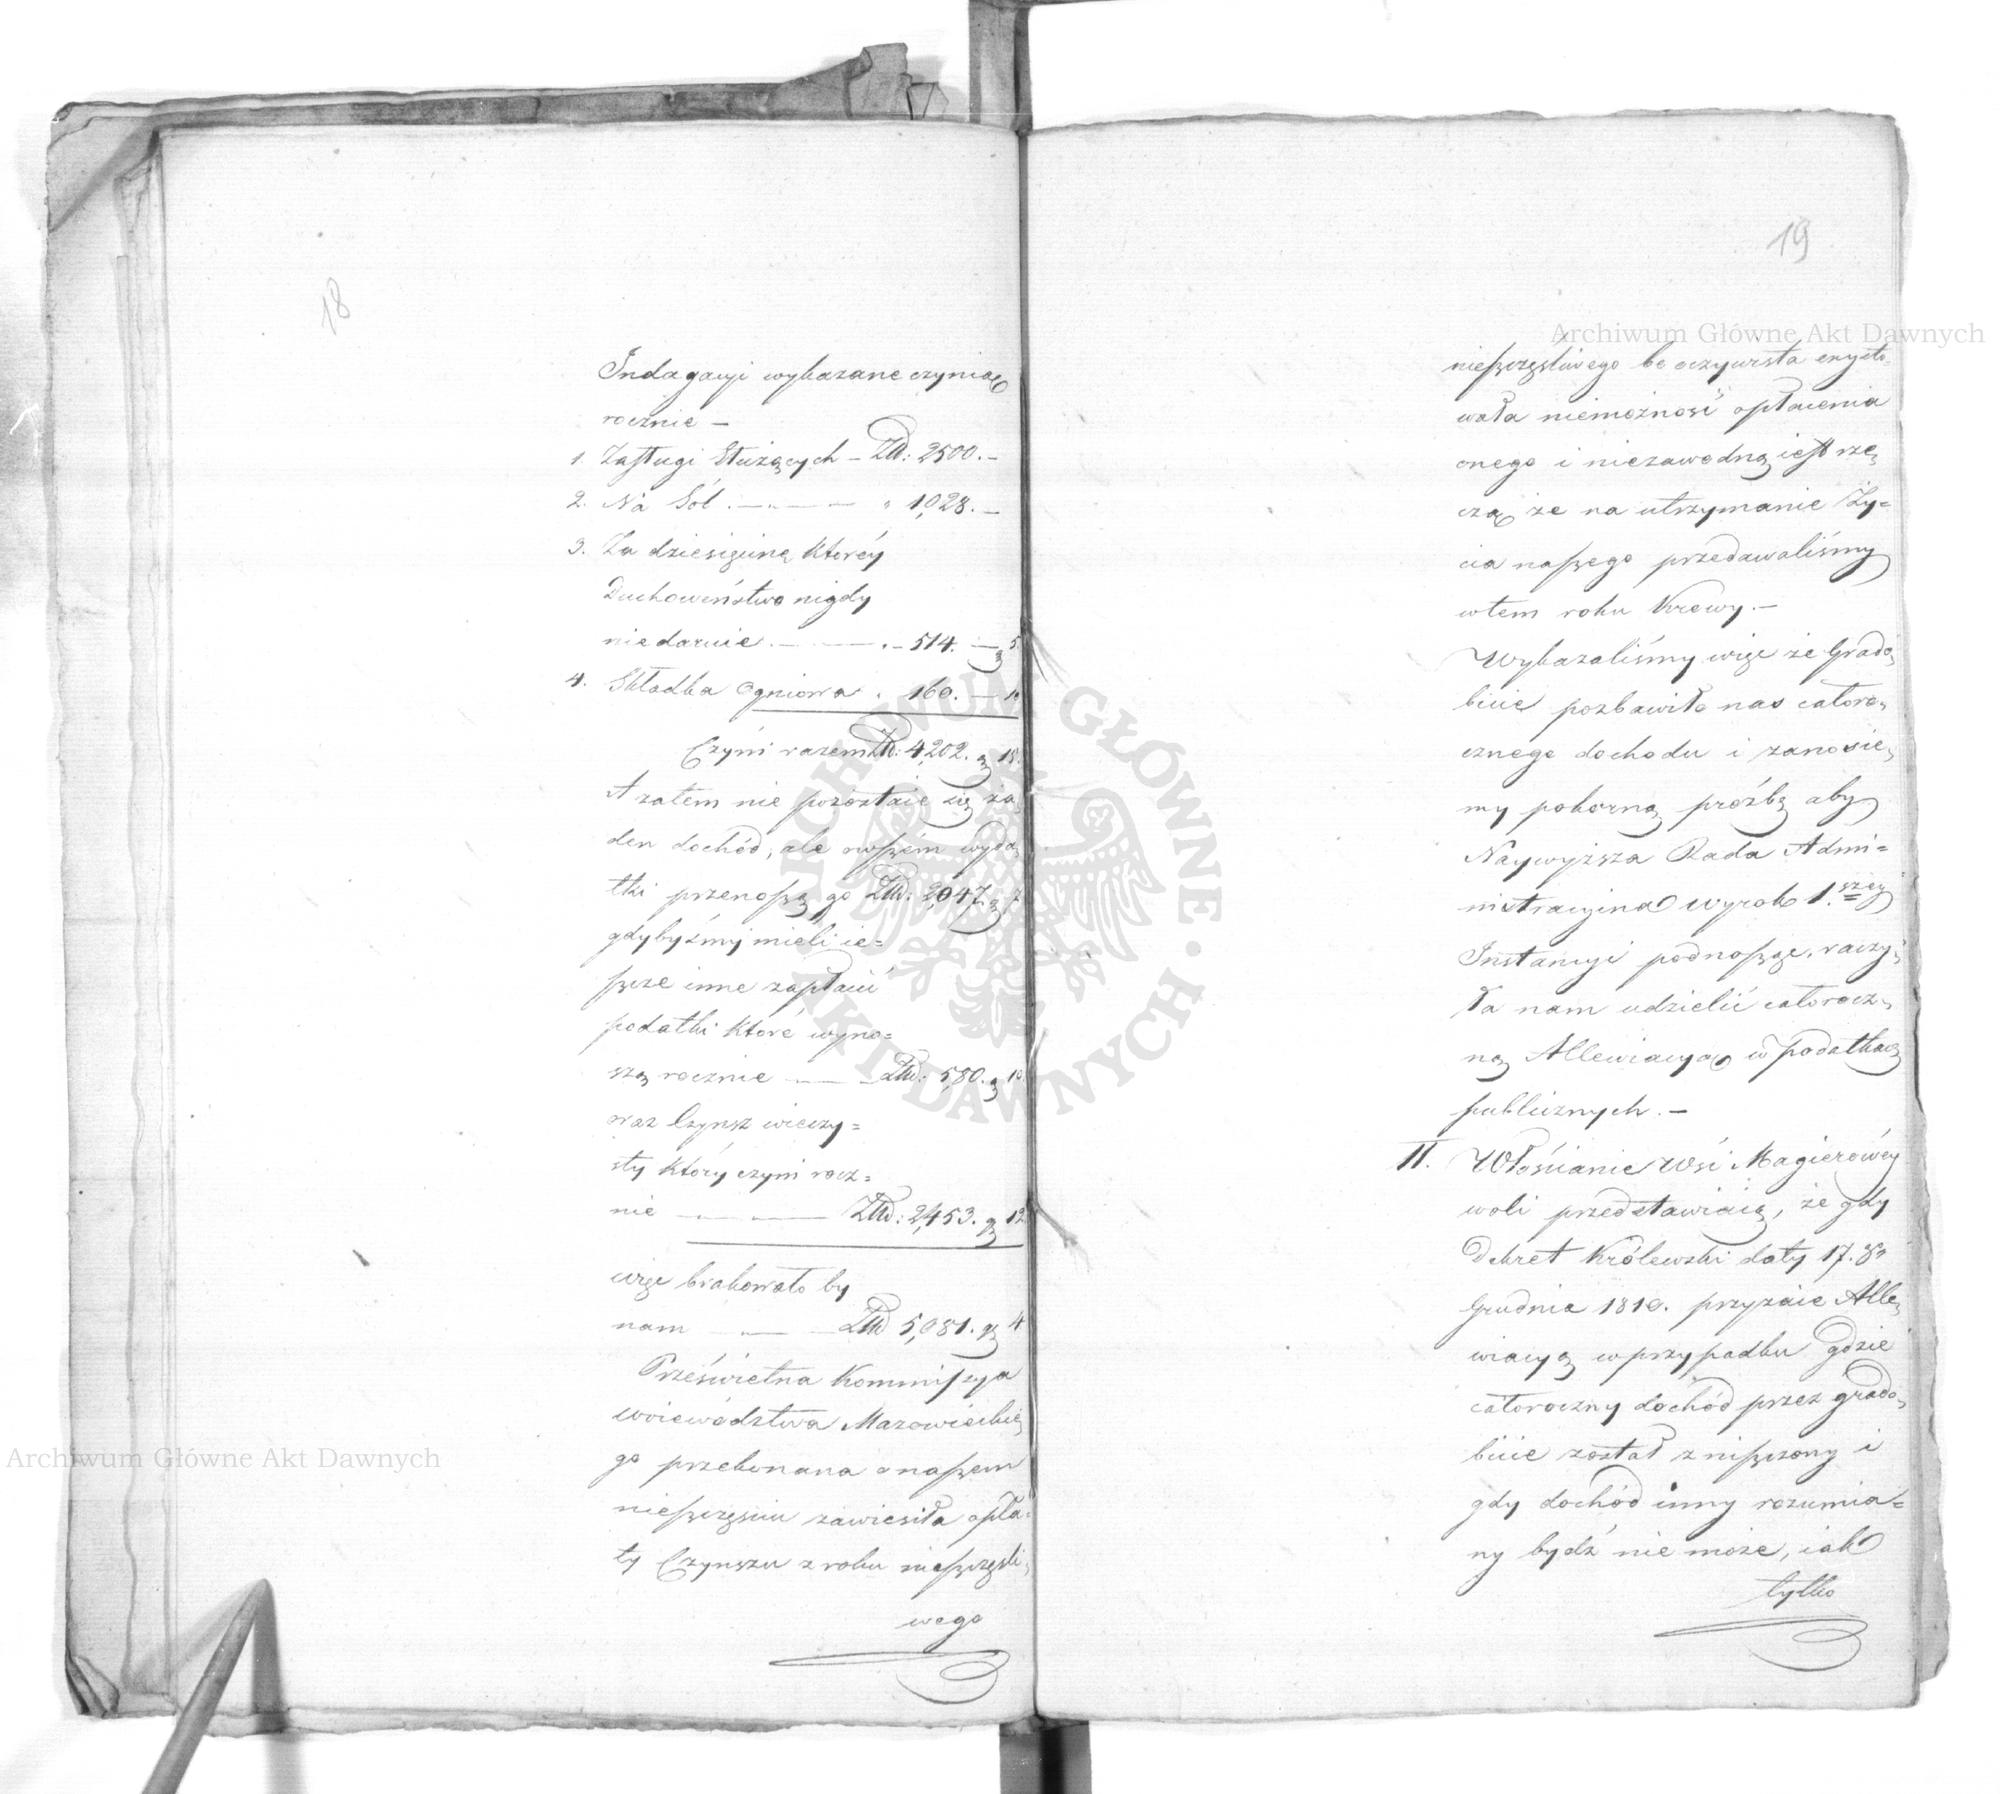 18
Indagacyi wykazane czynią
rocznie —
1. Zasługi Służących — Złł: 2500. —
2. Na Sól . — „ — — „ 1,028. —
3. Za dziesięcinę którey
Duchowieństwo nigdy
niedaruie . — — — „ — 514. — g 5
4. Składka Ogniowa „ 160. — 10
Czyni razem Złł: 4,202. g 15.
A zatem nie pozostaie się ża„
den dochód, ale owszem wyda„
tki przenoszą go Złł: 2,047 g 7
gdybyśmy mieli ie=
szcze inne zapłacić
podatki które wyno=
szą rocznie — — Złł: 580. g 10.
oraz Czynsz wieczy=
sty który czyni rocz=
nie — „ — — Złł: 2,453. g 12
więc brakowało by
nam — „ — — Złł 5,081. g 4
Prześwietna Kommissya
Woiewództwa Mazowieckie„
go przekonana o naszem
nieszczęściu zawiesiła opła=
ty Czynszu z roku nieszczęśli„
wego
19
nieszczęśliwego bo oczywista exysto„
wała niemożność opłacenia
onego i niezawodną iest rze„
czą że na utrzymanie Ży=
cia naszego przedawaliśmy
wtem roku Krowy. —
Wykazaliśmy więc że Grado„
bicie pozbawiło nas całoro„
cznego dochodu i zanosie„
my pokorną prośbę aby
Naywyższa Rada Admi=
nistracyina wyrok 1.szey
Instancyi podnosząc, raczy„
ła nam udzielić całorocz„
ną Allewiacyą w podatkach
publicznych. —
II. Włościanie Wsi Magierowey
woli przedstawiaią, że gdy
Dekret Królewski daty 17.go
Grudnia 1810. przyznaie Alle„
wiacyą w przypadku gdzie
całoroczny dochód przez grado„
bicie został zniszczony i
gdy dochód inny rozumia=
ny bydź nie może, iak
tylko
Archiwum Główne Akt Dawnych
Archiwum Główne Akt Dawnych
ARCHIWUM GŁÓWNE · AKT DAWNYCH ·